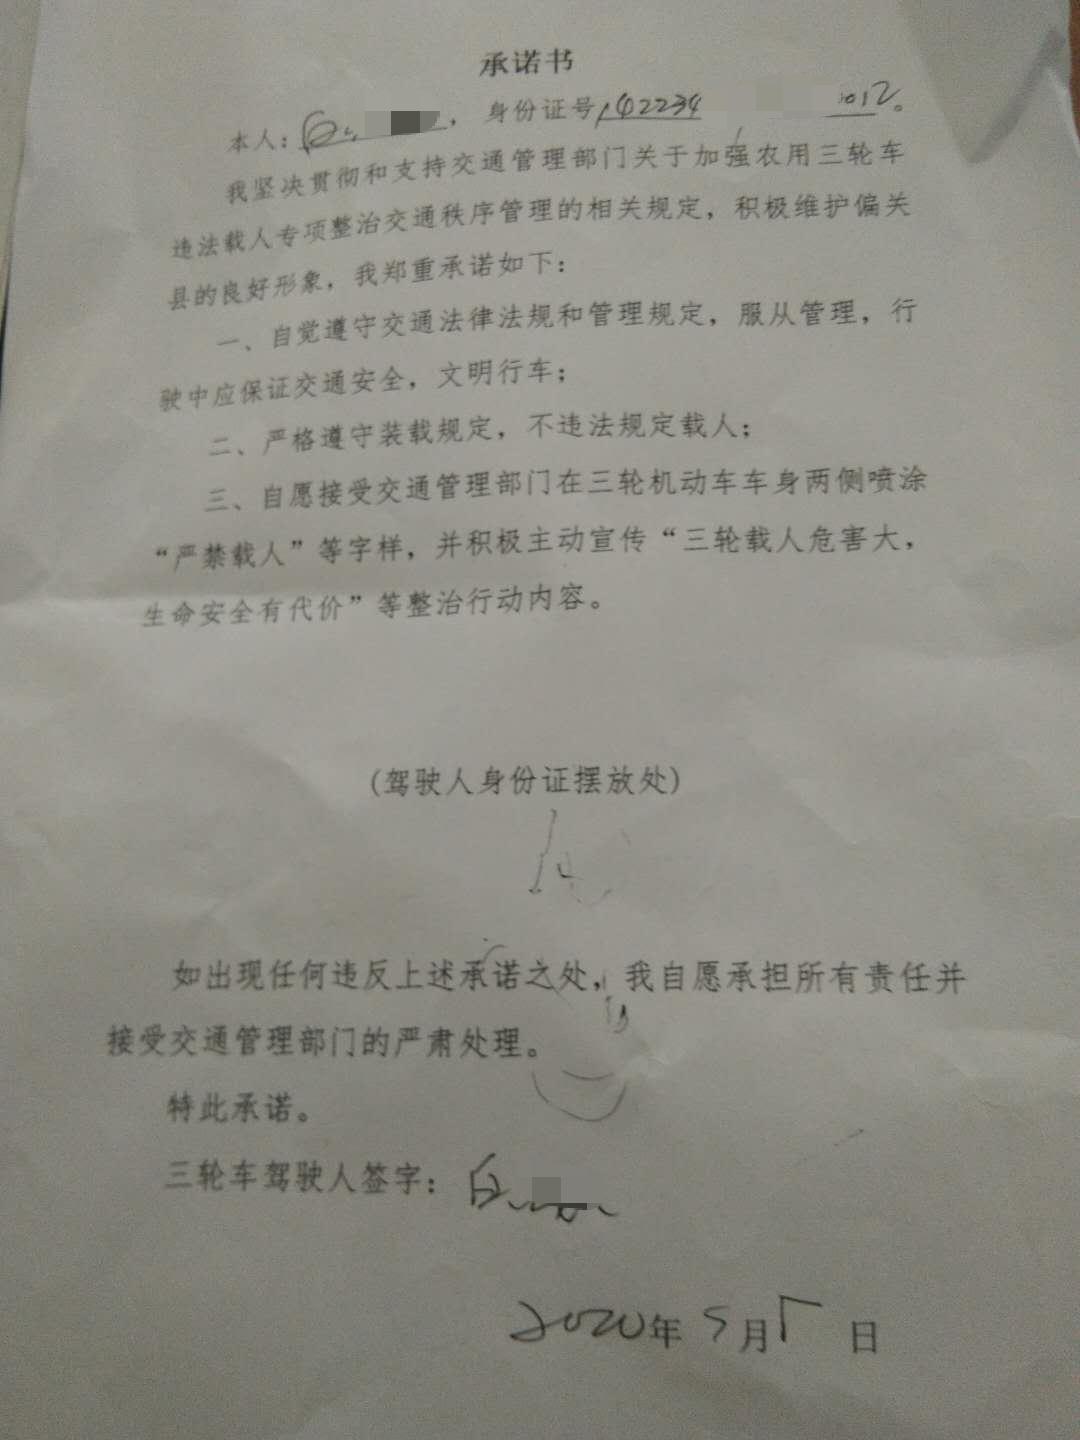 承诺书
本人：白，身份证号142234 1012。
我坚决贯彻和支持交通管理部门关于加强农用三轮车
违法载人专项整治交通秩序管理的相关规定，积极维护偏关
县的良好形象，我郑重承诺如下：
一、自觉遵守交通法律法规和管理规定，服从管理，行
驶中应保证交通安全，文明行车；
二、严格遵守装载规定，不违法规定载人；
三、自愿接受交通管理部门在三轮机动车车身两侧喷涂
“严禁载人”等字样，并积极主动宣传“三轮载人危害大，
生命安全有代价”等整治行动内容。
(驾驶人身份证摆放处)
如出现任何违反上述承诺之处，我自愿承担所有责任并
接受交通管理部门的严肃处理。
特此承诺。
三轮车驾驶人签字：白
2020年5月 日